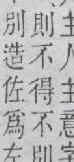 主人主意字
則不得不
別造佐為左